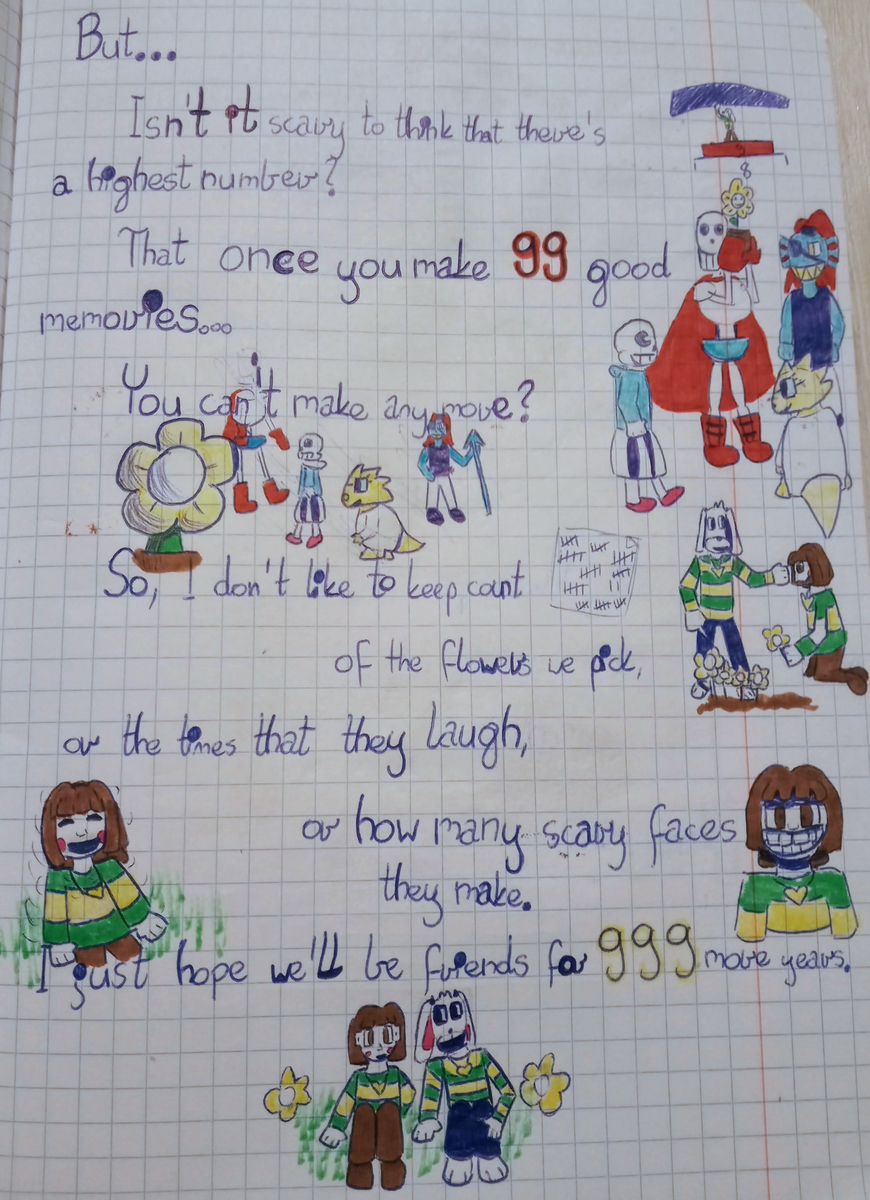 But...
Isn't it scary to think that there's
8
a highest number?
That once you make 99 good
memories...
You can't make any more?
So, I don't like to keep count
of the flowers we pick,
or the times that they laugh,
or how many scary faces
they make.
I just hope we'll be friends for 999 more years.